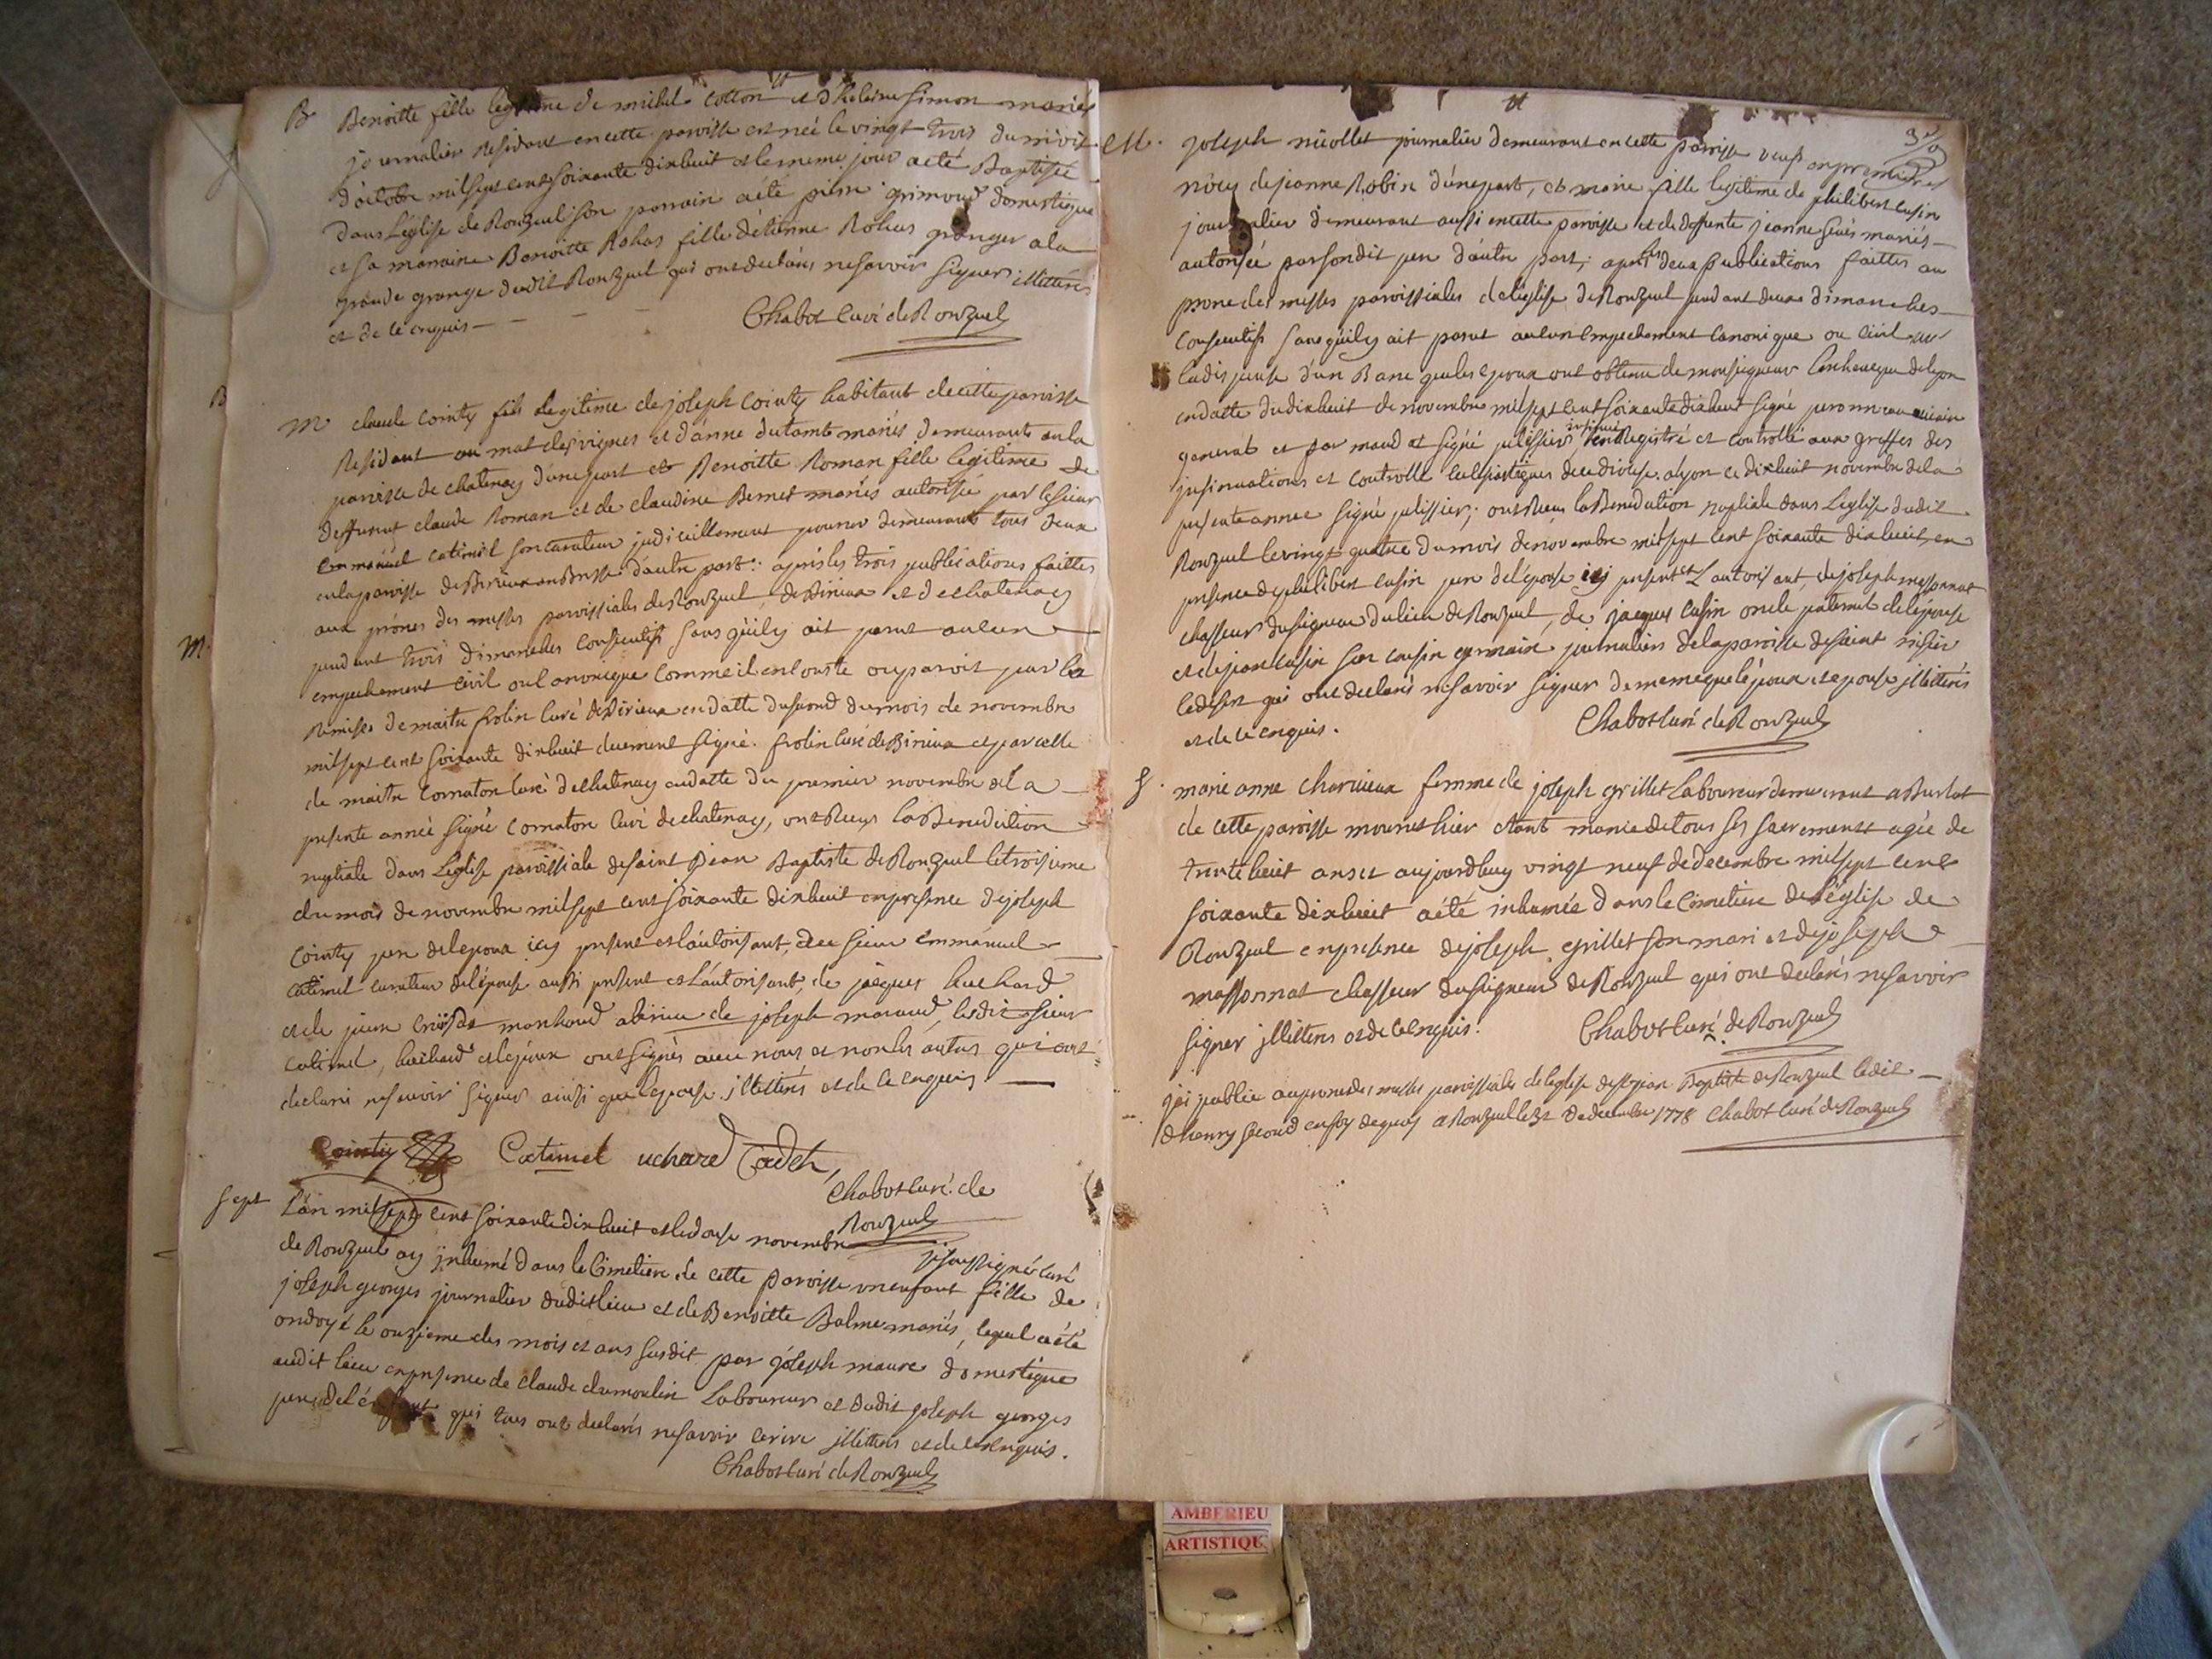 B Benoitte fille legitime de michel Cotton et d'heleine Simon mariés
journalier Residant en cette paroisse est née le vingt trois du mois
d'octobre mil sept cent soixante dixhuit et le meme jour a eté Baptisée
dans L'église de Ronzuel son parrain a été pierre grimoud domestique
et sa marraine Benoitte Rohas fille d'étienne Rohas granger a la
grande grange dudit Ronzuel qui ont declarés ne savoir signer illitérés
et de ce enquis - - - - Chabot Curé de Ronzuel
B
M Claude Cointy fils Legitime de joseph Cointy habitant de cette paroisse
Residant au mat des vignes et d'anne mariés demeurants en la
paroisse de chatenay d'une part et Benoitte Roman fille legitime de
deffunt Claude Roman et de Claudine Bernet mariés autorisée par le sieur
Emmanuel Catimel son curateur judiciellement pourvu demeurants tous deux
en la paroisse de Birieux en Bresse d'autre part: après les trois publications faittes
aux prônes des messes paroissiales de Ronzuel, de Birieux et de chatenay
M. pendant trois dimanches consecutifs sans qu'il y ait parut aucun
empechement civil ou canonique comme il en conste ou paroit par la
Remise de maitre frolin Curé de Birieux en datte du second du mois de novembre
mil sept cent soixante dixhuit duement signé. frolin curé de Birieux et par celle
de maitre Comaton curé de chatenay en datte du premier novembre de la
presente année signé Comaton Curé de chatenay, ont Reçus la Benediction
nuptiale dans L'église paroissiale de saint jean Baptiste de Ronzuel le troisieme
du mois de novembre mil sept cent soixante dixhuit en presence de joseph
Cointy pere de lepoux icy present et l'autorisant, du sieur Emmanuel
Catimel curateur de l'épouse aussi present et l'autorisant, de jacques huchard
et de joseph maraud, lesdit sieur
Catimel, huchard et lepoux ont signés avec nous et non les autres qui ont
declaré ne savoir signer ainsi que l'epouse illitérés et de ce enquis
Cointy Catimel uchard Cadet,
Chabot Curé de
Ronzuel
sept L'an mil sept cent soixante dixhuit et le douse novembre je soussigné curé
de Ronzuel ay inhumé dans le Cimetiere de cette paroisse un enfant fille de
joseph georges journalier dudit lieu et de Benoitte Balme mariés, lequel a eté
ondoyé le onzieme des mois et ans susdit par joseph maure domestique
audit lieu en presence de Claude dumoulin Laboureur et dudit joseph georges
pere de l'enfant qui tous ont declarés ne savoir ecrire illitérés et de ce enquis.
Chabot Curé de Ronzuel
M. joseph nicollet journalier demeurant en cette paroisse veuf en premieres
nôces de jeanne Robin d'une part, et marie fille legitime de philibert Cusin
journalier demeurant aussi en cette paroisse et de deffunte jeanne mariés
autorisée par son dit pere d'autre part; après les deux publications faittes au
prone des messes paroissiales de l'église de Ronzuel pendant deux dimanches
consecutifs sans qu'il y ait parut aucun empechement canonique ou civil vu
la dispense d'un Banc que les epoux ont obtenu de monseigneur l'archeveque de lyon
en datte du dixhuit de novembre mil sept cent soixante dixhuit signé vicaire
general et par mand et signé pelissier, insinué enRegistré et controllé aux greffes des
insinuations et controlle eclesiastiques de ce diocese. a lyon ce dixhuit novembre de la
presente année signé pelissier; ont Reçus la Benediction nuptiale dans L'église dudit
Ronzuel le vingt quatre du mois de novembre mil sept cent soixante dixhuit, en
presence de philibert Cusin pere de l'épouse icy present et L'autorisant, de joseph massonnat
chasseur du seigneur du lieu de Ronzuel, de jacques Cusin oncle paternel de l'epouse
et de jean Cusin son cousin germain, journaliers de la paroisse de saint nisier
le desert qui ont declarés ne savoir signer de meme que l'époux et epouse illitérés
et de ce enquis. Chabot Curé de Ronzuel
S. marie anne charvieux femme de joseph grillet Laboureur demeurant a Burlat
de cette paroisse mourut hier etant munie de tous ses sacrements agée de
trente huit ans et aujourd'huy vingt neuf de decembre mil sept cent
soixante dixhuit a été inhumée dans le Cimetiere de l'église de
Ronzuel en presence de joseph grillet son mari et de joseph
massonnat chasseur du seigneur de Ronzuel qui ont declarés ne savoir
signer illitérés et de ce enquis. Chabot Curé de Ronzuel
j'ai publié au prone des messes paroissiales de leglise de st jean Baptiste de Ronzuel ledit
d'henry second en foy de quoy a Ronzuel le 31 decembre 1778 Chabot Curé de Ronzuel
AMBERIEU
ARTISTIQU